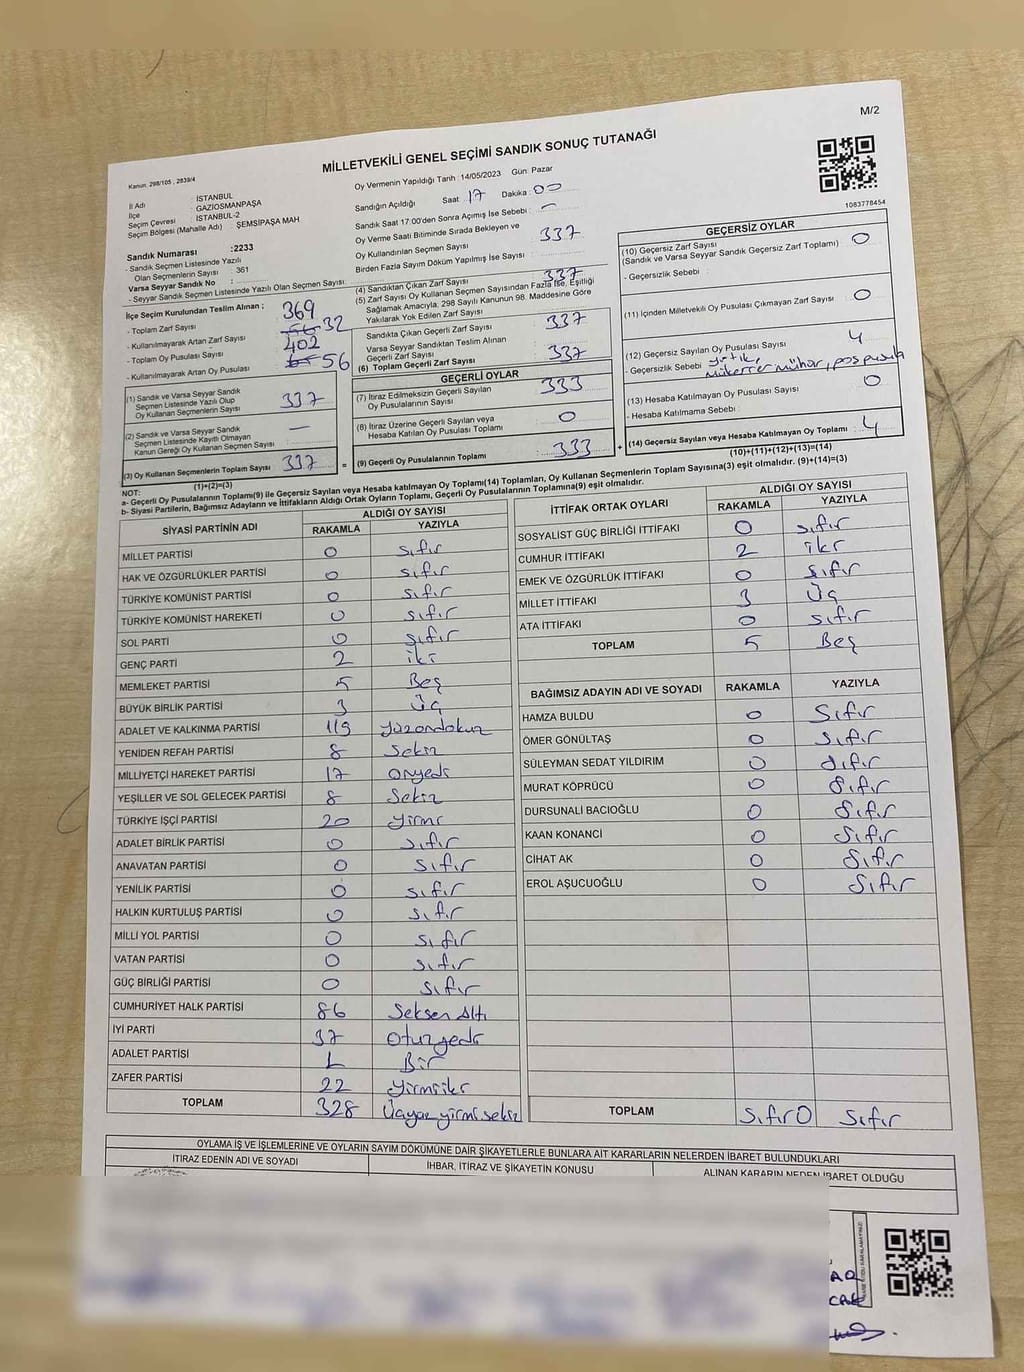 M/2
MİLLETVEKİLİ GENEL SEÇİMİ SANDIK SONUÇ TUTANAĞI
Kanun. 298/105 , 2839/4
1083778454
İl Adı : İSTANBUL
İlçe : GAZİOSMANPAŞA
Seçim Çevresi : İSTANBUL-2
Seçim Bölgesi (Mahalle Adı) : ŞEMSİPAŞA MAH
Sandık Numarası :2233
- Sandık Seçmen Listesinde Yazılı
Olan Seçmenlerin Sayısı : 361
Varsa Seyyar Sandık No :
- Seyyar Sandık Seçmen Listesinde Yazılı Olan Seçmen Sayısı:
İlçe Seçim Kurulundan Teslim Alınan ;
- Toplam Zarf Sayısı : 369
- Kullanılmayarak Artan Zarf Sayısı : 32
- Toplam Oy Pusulası Sayısı : 402
- Kullanılmayarak Artan Oy Pusulası : 56
(1) Sandık ve Varsa Seyyar Sandık
Seçmen Listesinde Yazılı Olup
Oy Kullanan Seçmenlerin Sayısı : 337
(2) Sandık ve Varsa Seyyar Sandık
Seçmen Listesinde Kayıtlı Olmayan
Kanun Gereği Oy Kullanan Seçmen Sayısı : —
(3) Oy Kullanan Seçmenlerin Toplam Sayısı : 337
(1)+(2)=(3)
Oy Vermenin Yapıldığı Tarih : 14/05/2023 Gün: Pazar
Sandığın Açıldığı Saat : 17 Dakika : 00
Sandık Saat 17:00'den Sonra Açımış İse Sebebi : —
Oy Verme Saati Bitiminde Sırada Bekleyen ve
Oy Kullandırılan Seçmen Sayısı : 337
Birden Fazla Sayım Döküm Yapılmış İse Sayısı :
(4) Sandıktan Çıkan Zarf Sayısı : 337
(5) Zarf Sayısı Oy Kullanan Seçmen Sayısından Fazla İse, Eşitliği
Sağlamak Amacıyla, 298 Sayılı Kanunun 98. Maddesine Göre
Yakılarak Yok Edilen Zarf Sayısı :
Sandıkta Çıkan Geçerli Zarf Sayısı : 337
Varsa Seyyar Sandıktan Teslim Alınan
Geçerli Zarf Sayısı :
(6) Toplam Geçerli Zarf Sayısı : 337
GEÇERLİ OYLAR
(7) İtiraz Edilmeksizin Geçerli Sayılan
Oy Pusulalarının Sayısı : 333
(8) İtiraz Üzerine Geçerli Sayılan veya
Hesaba Katılan Oy Pusulası Toplamı : 0
= (9) Geçerli Oy Pusulalarının Toplamı : 333 +
GEÇERSİZ OYLAR
(10) Geçersiz Zarf Sayısı : 0
(Sandık ve Varsa Seyyar Sandık Geçersiz Zarf Toplamı)
- Geçersizlik Sebebi :
(11) İçinden Milletvekili Oy Pusulası Çıkmayan Zarf Sayısı : 0
(12) Geçersiz Sayılan Oy Pusulası Sayısı : 4
- Geçersizlik Sebebi : yırtık,
mükerrer mühür,
(13) Hesaba Katılmayan Oy Pusulası Sayısı : 0
- Hesaba Katılmama Sebebi :
(14) Geçersiz Sayılan veya Hesaba Katılmayan Oy Toplamı : 4
(10)+(11)+(12)+(13)=(14)
NOT:
a- Geçerli Oy Pusulalarının Toplamı(9) ile Geçersiz Sayılan veya Hesaba katılmayan Oy Toplamı(14) Toplamları, Oy Kullanan Seçmenlerin Toplam Sayısına(3) eşit olmalıdır. (9)+(14)=(3)
b- Siyasi Partilerin, Bağımsız Adayların ve İttifakların Aldığı Ortak Oyların Toplamı, Geçerli Oy Pusulalarının Toplamına(9) eşit olmalıdır.
SİYASİ PARTİNİN ADI ALDIĞI OY SAYISI
RAKAMLA YAZIYLA
MİLLET PARTİSİ 0 sıfır
HAK VE ÖZGÜRLÜKLER PARTİSİ 0 sıfır
TÜRKİYE KOMÜNİST PARTİSİ 0 sıfır
TÜRKİYE KOMÜNİST HAREKETİ 0 sıfır
SOL PARTİ 0 sıfır
GENÇ PARTİ 2 iki
MEMLEKET PARTİSİ 5 Beş
BÜYÜK BİRLİK PARTİSİ 3 Üç
ADALET VE KALKINMA PARTİSİ 119 yüzondokuz
YENİDEN REFAH PARTİSİ 8 Sekiz
MİLLİYETÇİ HAREKET PARTİSİ 17 onyedi
YEŞİLLER VE SOL GELECEK PARTİSİ 8 Sekiz
TÜRKİYE İŞÇİ PARTİSİ 20 yirmi
ADALET BİRLİK PARTİSİ 0 sıfır
ANAVATAN PARTİSİ 0 sıfır
YENİLİK PARTİSİ 0 sıfır
HALKIN KURTULUŞ PARTİSİ 0 sıfır
MİLLİ YOL PARTİSİ 0 sıfır
VATAN PARTİSİ 0 sıfır
GÜÇ BİRLİĞİ PARTİSİ 0 sıfır
CUMHURİYET HALK PARTİSİ 86 Seksen Altı
İYİ PARTİ 37 Otuzyedi
ADALET PARTİSİ 1 Bir
ZAFER PARTİSİ 22 yirmiiki
TOPLAM 328 Üçyüzyirmisekiz
İTTİFAK ORTAK OYLARI ALDIĞI OY SAYISI
RAKAMLA YAZIYLA
SOSYALIST GÜÇ BİRLİĞİ İTTİFAKI 0 sıfır
CUMHUR İTTİFAKI 2 iki
EMEK VE ÖZGÜRLÜK İTTİFAKI 0 sıfır
MİLLET İTTİFAKI 3 Üç
ATA İTTİFAKI 0 sıfır
TOPLAM 5 Beş
BAĞIMSIZ ADAYIN ADI VE SOYADI RAKAMLA YAZIYLA
HAMZA BULDU 0 Sıfır
ÖMER GÖNÜLTAŞ 0 Sıfır
SÜLEYMAN SEDAT YILDIRIM 0 Sıfır
MURAT KÖPRÜCÜ 0 Sıfır
DURSUNALİ BACIOĞLU 0 Sıfır
KAAN KONANCİ 0 Sıfır
CİHAT AK 0 Sıfır
EROL AŞUCUOĞLU 0 Sıfır
TOPLAM Sıfır 0 Sıfır
OYLAMA İŞ VE İŞLEMLERİNE VE OYLARIN SAYIM DÖKÜMÜNE DAİR ŞİKAYETLERLE BUNLARA AİT KARARLARIN NELERDEN İBARET BULUNDUKLARI
İTİRAZ EDENİN ADI VE SOYADI İHBAR, İTİRAZ VE ŞİKAYETİN KONUSU ALINAN KARARIN NEDEN İBARET OLDUĞU